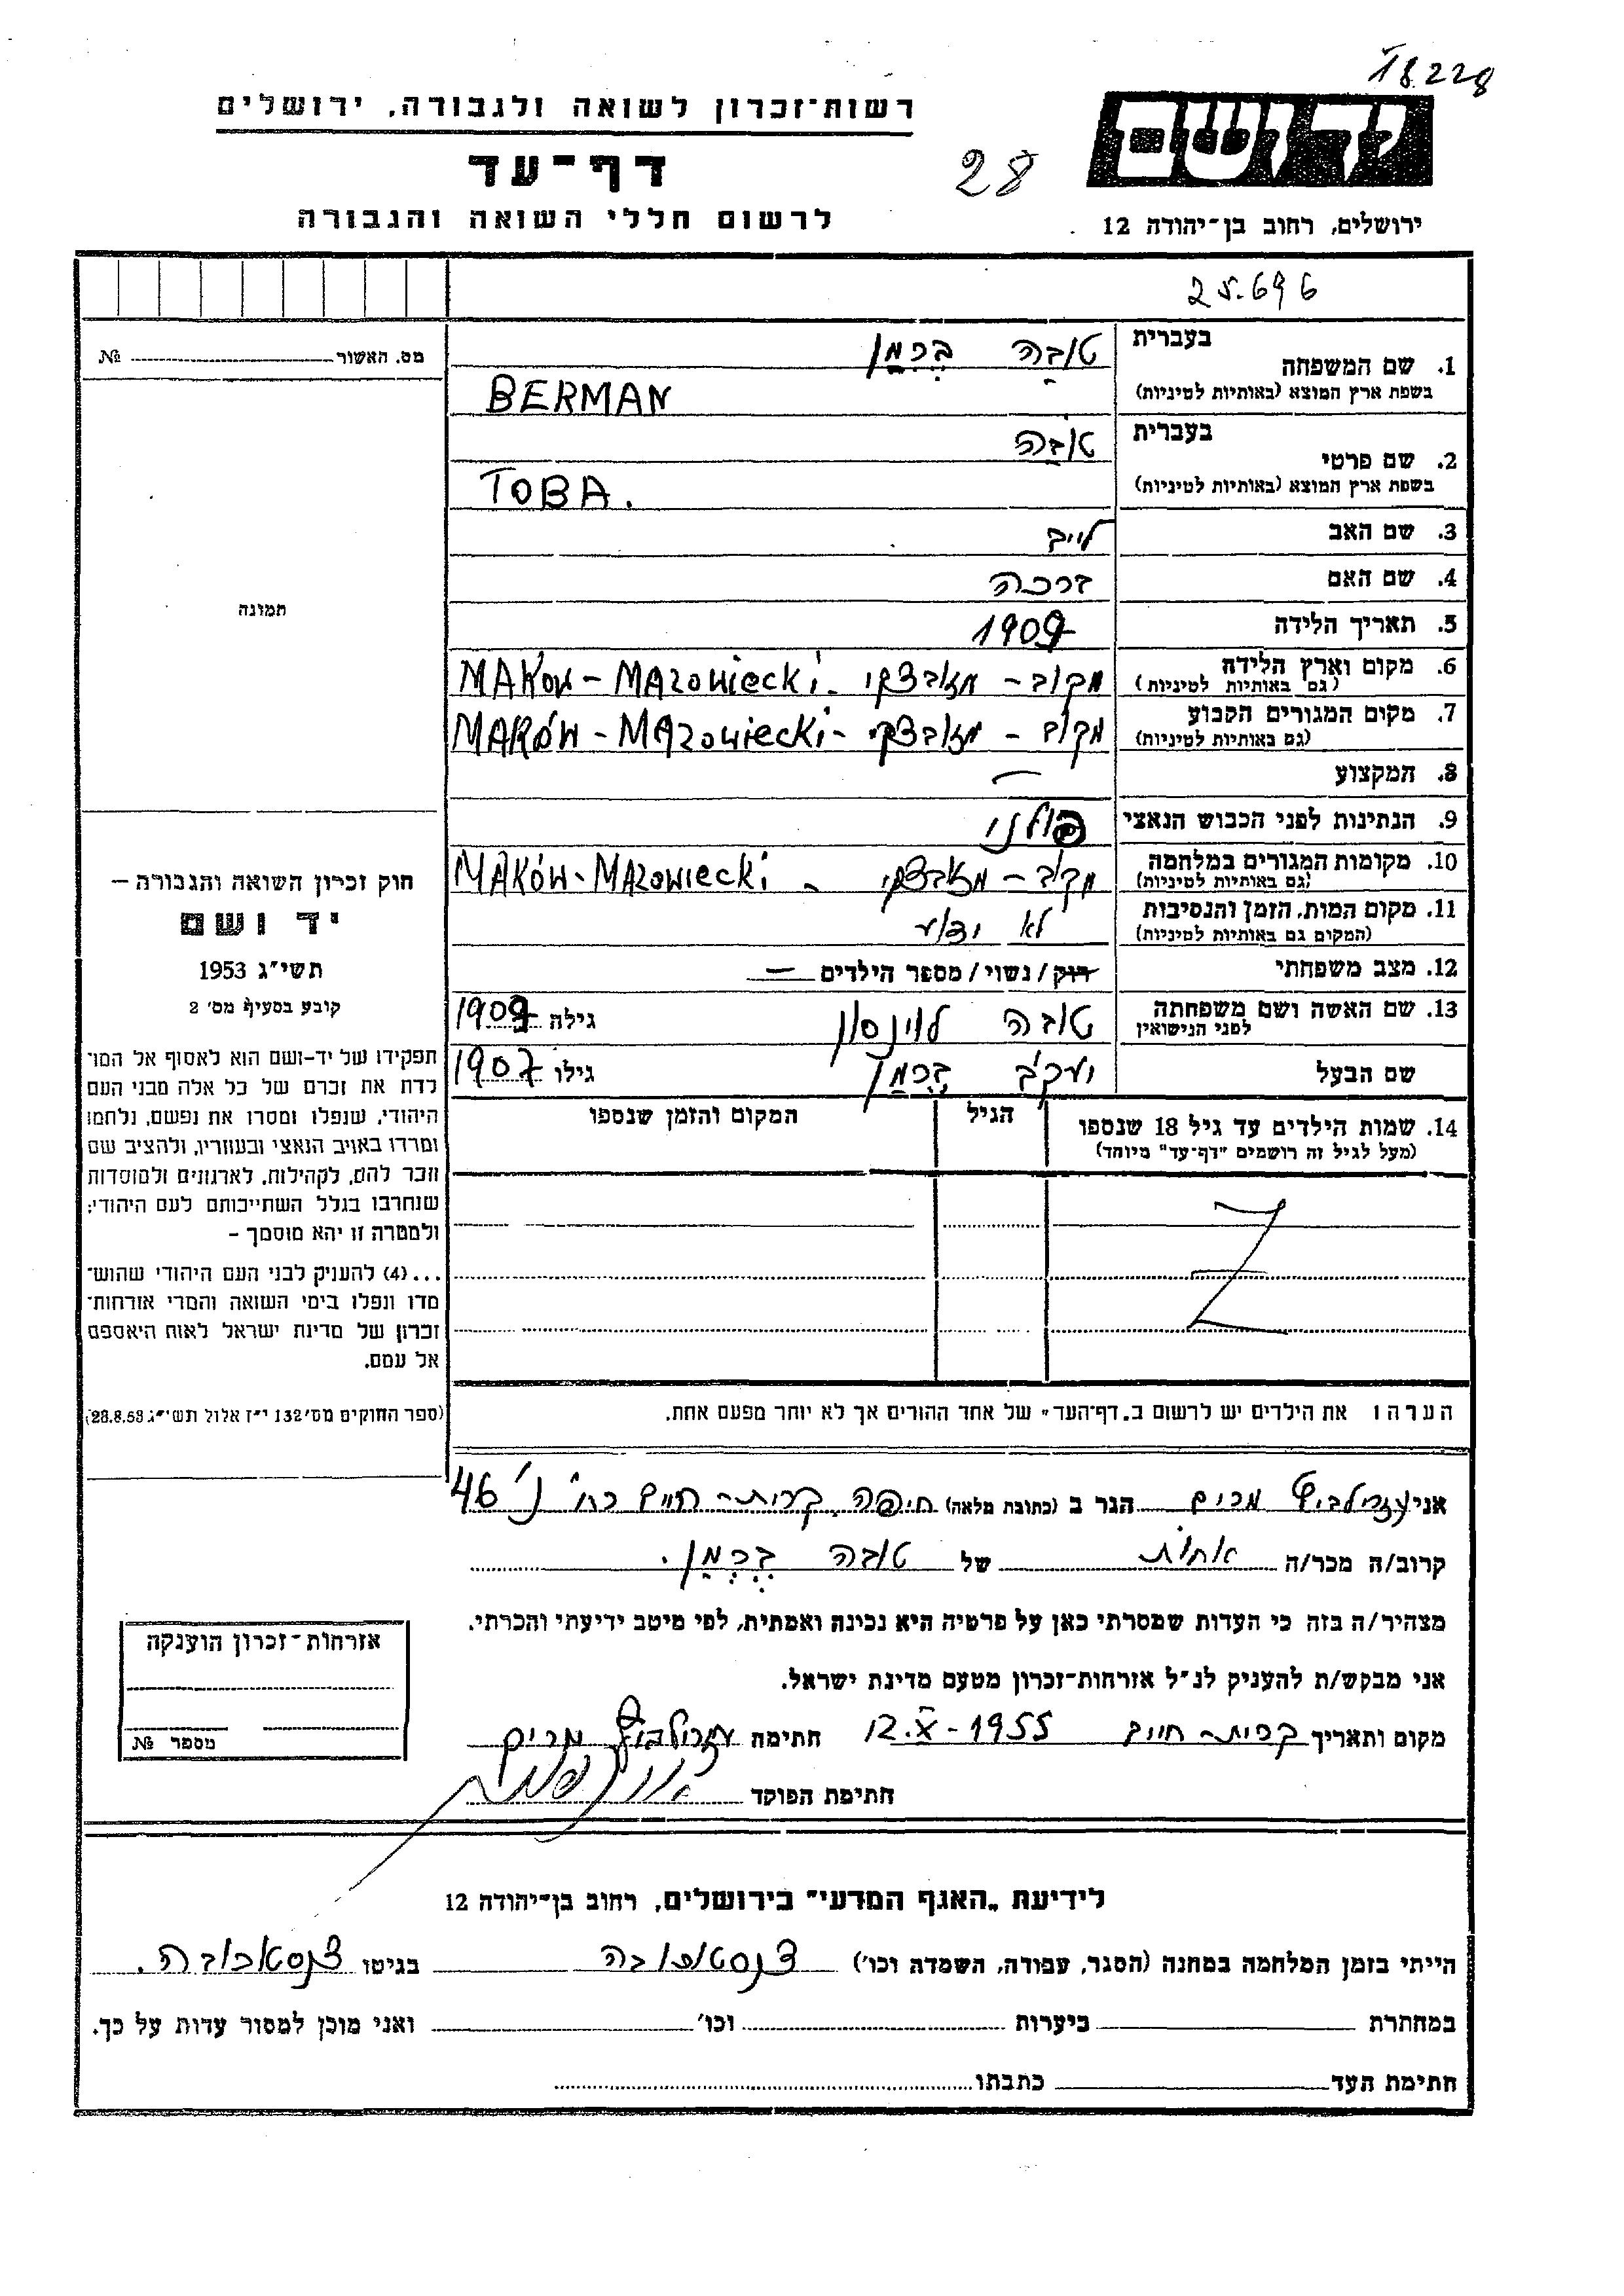 18228
רשות־זכרון לשואה ולגבורה, ירושלים
ידושם
דף־עד
28
לרשום חללי השואה והגבורה
ירושלים, רחוב בן־יהודה 12
25.696
מס. האשור № 
1. שם המשפחה בעברית טובה בֶּרְמַן
בשפת ארץ המוצא (באותיות לטיניות) BERMAN
2. שם פרטי בעברית טובה
בשפת ארץ המוצא (באותיות לטיניות) TOBA.
3. שם האב לייב
4. שם האם
תמונה
5. תאריך הלידה 1909
6. מקום וארץ הלידה (גם באותיות לטיניות) מקוב - מזובצקי - MAKÓW - MAZOWIECKI
7. מקום המגורים הקבוע (גם באותיות לטיניות) מקוב - מזובצקי - MAKÓW - MAZOWIECKI
8. המקצוע —
9. הנתינות לפני הכבוש הנאצי פולני
10. מקומות המגורים במלחמה (גם באותיות לטיניות) מקוב - מזובצקי - MAKÓW - MAZOWIECKI
11. מקום המות, הזמן והנסיבות (המקום גם באותיות לטיניות) לא ידוע
12. מצב משפחתי רוק / נשוי / מספר הילדים —
13. שם האשה ושם משפחתה לפני הנישואין טובה לוינסון גילה 1909
שם הבעל יעקב בֶּרְמַן גילו 1907
14. שמות הילדים עד גיל 18 שנספו הגיל המקום והזמן שנספו
(מעל לגיל זה רושמים "דף־עד" מיוחד)
הערה: את הילדים יש לרשום ב„דף־העד" של אחד ההורים אך לא יותר מפעם אחת.
חוק זכרון השואה והגבורה —
יד ושם
תשי"ג 1953
קובע בסעיף מס' 2
תפקידו של יד-ושם הוא לאסוף אל המו־
לדת את זכרם של כל אלה מבני העם
היהודי, שנפלו ומסרו את נפשם, נלחמו
ומרדו באויב הנאצי ובעוזריו, ולהציב שם
וזכר להם, לקהילות, לארגונים ולמוסדות
שנחרבו בגלל השתייכותם לעם היהודי;
ולמטרה זו יהא מוסמך –
...(4) להעניק לבני העם היהודי שהוש־
מדו ונפלו בימי השואה והמרי אזרחות־
זכרון של מדינת ישראל לאות היאספם
אל עמם.
(ספר החוקים מס' 132 י"ז אלול תשי"ג 28.8.53)
אני מרים הגר ב (כתובת מלאה) חיפה קרית-חיים רח' נ' 46
קרוב/ה מכר/ה אחות של טובה בֶּרְמַן.
מצהיר/ה בזה כי העדות שמסרתי כאן על פרטיה היא נכונה ואמתית, לפי מיטב ידיעתי והכרתי.
אני מבקש/ת להעניק לנ"ל אזרחות־זכרון מטעם מדינת ישראל.
מקום ותאריך קרית-חיים 12.X-1955 חתימה מרים
חתימת הפוקד
אזרחות־זכרון הוענקה
מספר №
לידיעת „האגף המדעי" בירושלים, רחוב בן־יהודה 12
הייתי בזמן המלחמה במחנה (הסגר, עפודה, השמדה וכו') צ'נסטוכובה בגיטו צ'נסטוכובה.
במחתרת ביערות וכו' ואני מוכן למסור עדות על כך.
חתימת העד כתבתו